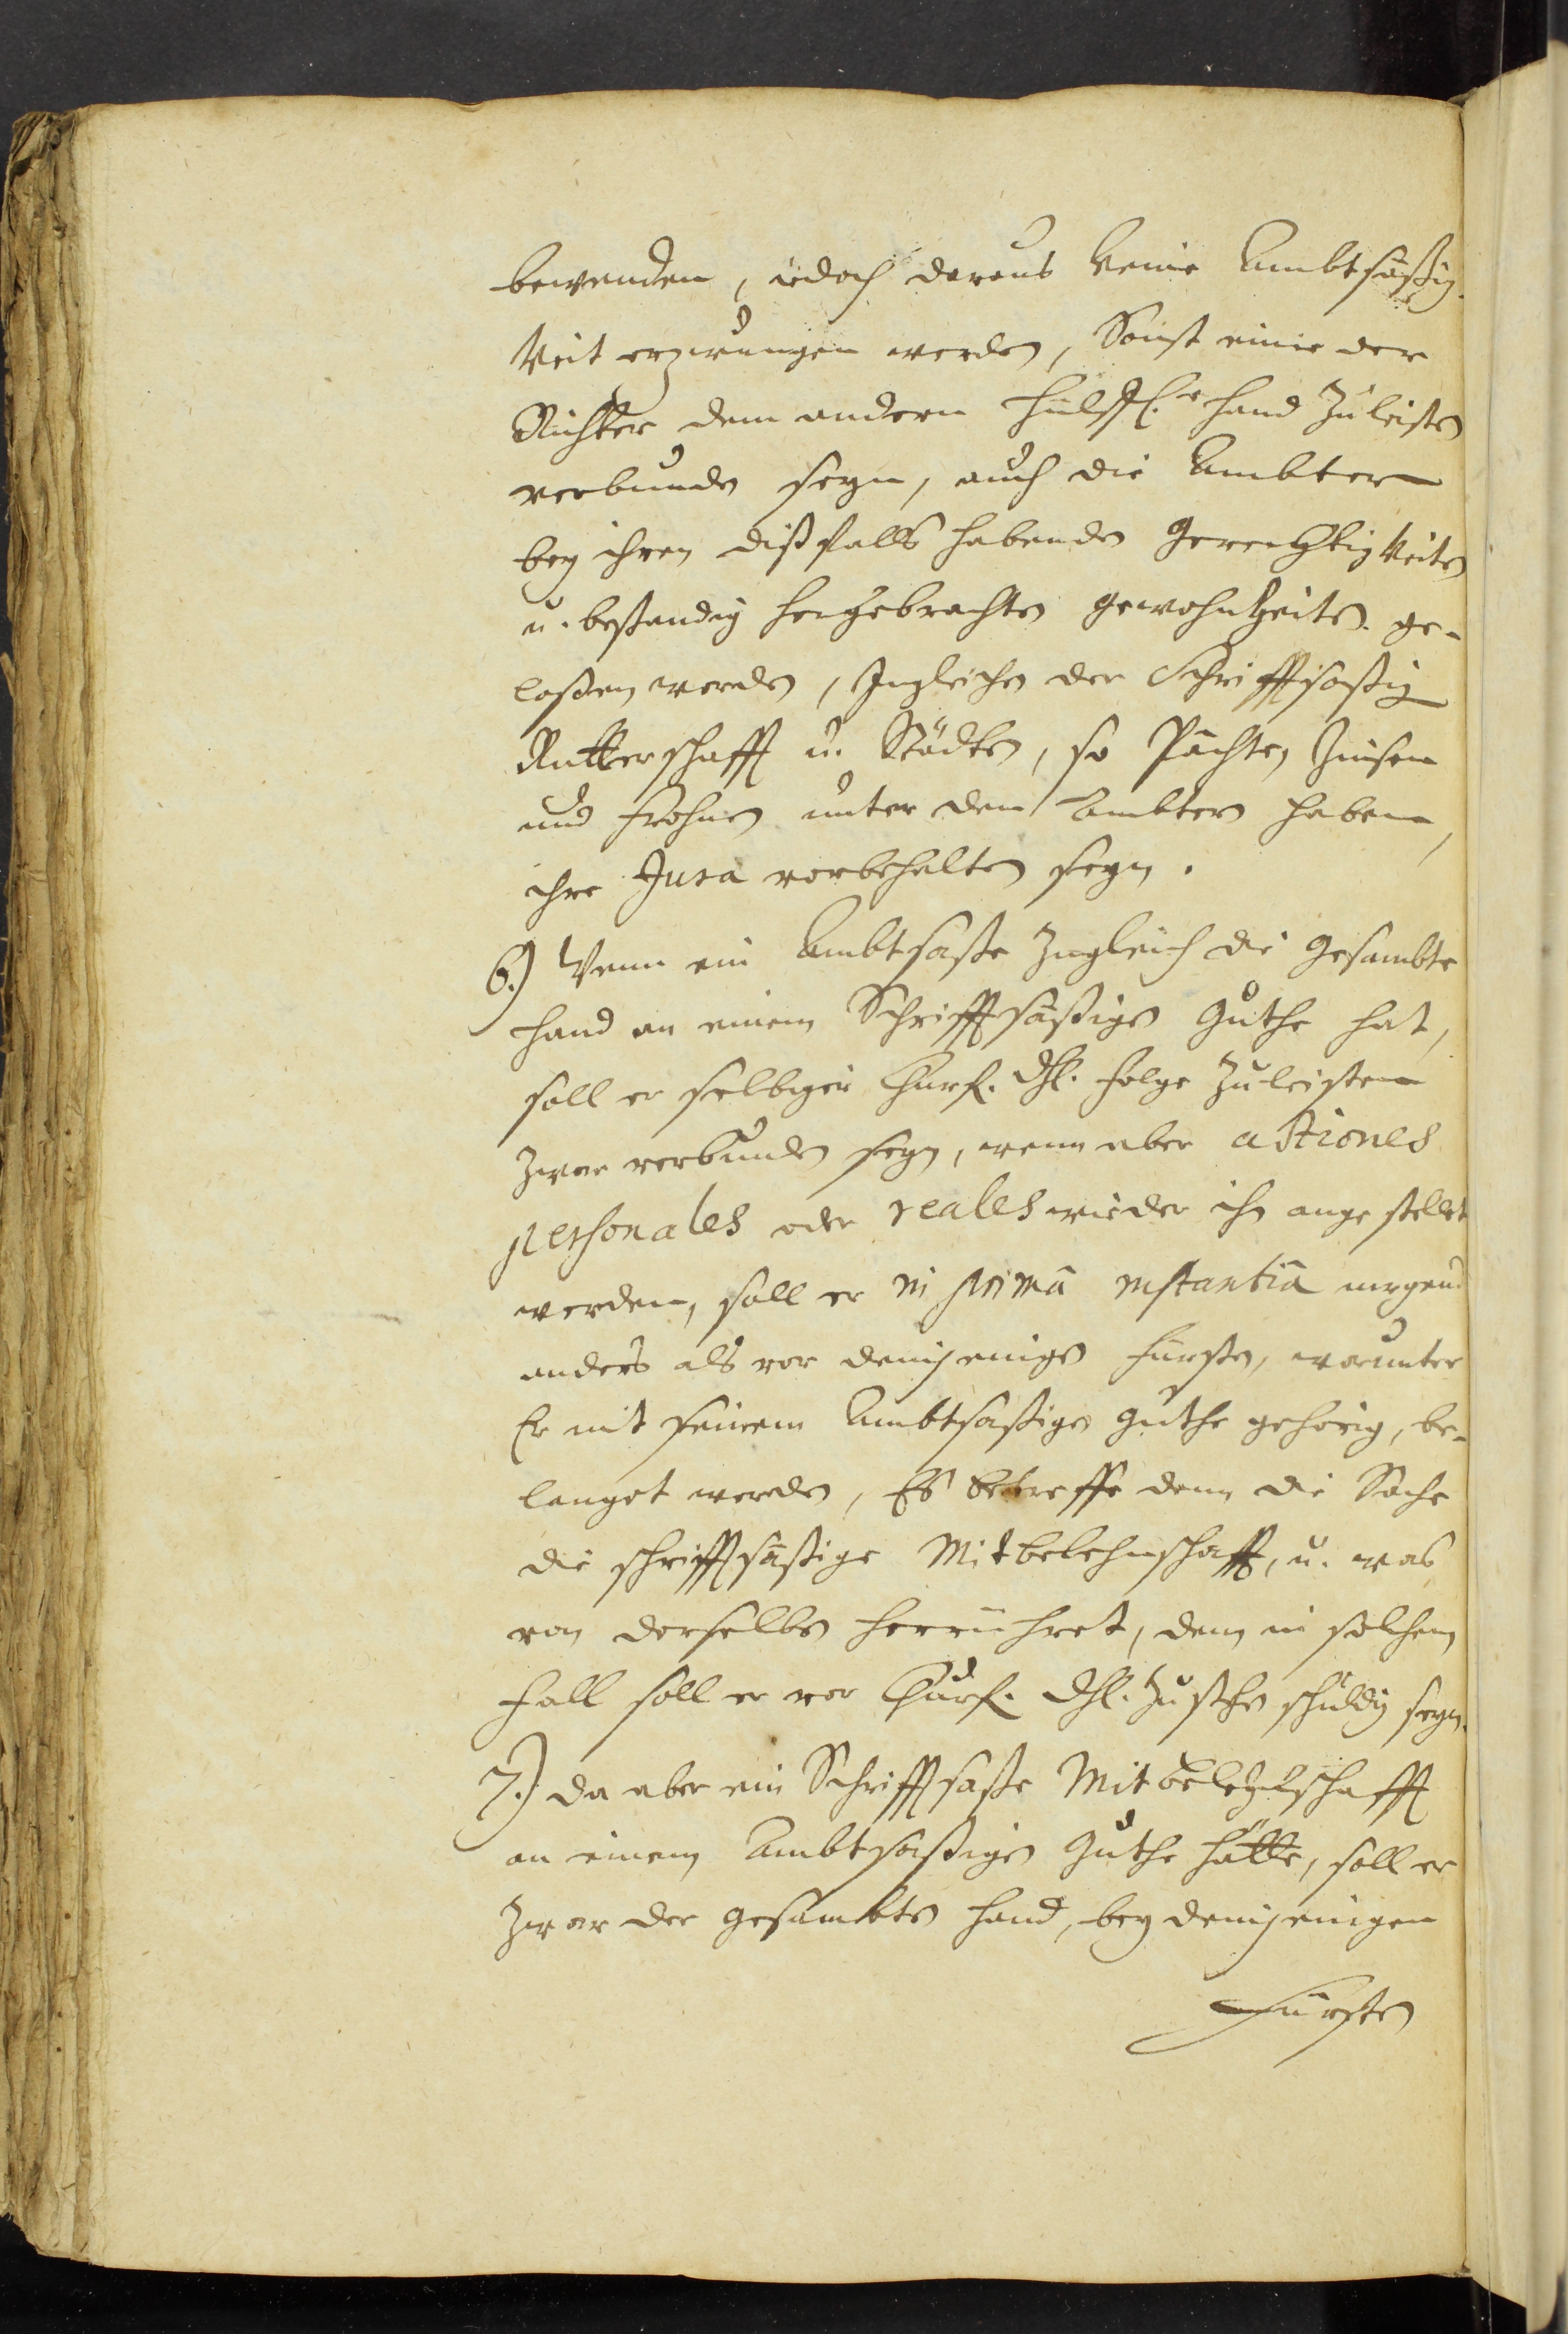 bewenden, iedoch daraus keine Ambtsäßig-
keit erzwungen werden, Sonst eine der
Richter dem andern hülffl.e hand zu leisten
verbunden seyn, auch die Ambter
bey ihren dißfalls habenden Gerechtigkeiten
u. bestandig hergebrachten gewohnheiten ge-
laßen werden, Ingleichen der Schrifftsaßig
Ritterschafft u. Städten, so Pachte, Zinsen
und Frohnen unter den Ambtern haben,
ihre Jura vorbehalten seyn.
6.) Wenn ein Ambtsaße zugleich die gesambte
hand an einem Schrifftsäßigen Guthe hat,
soll er selbiger Churf. Dhl. folge zu leisten
zwar verbunden seyn, wenn aber actiones
personales oder reales wieder ihn angestellet
werden, soll er in prima instantia nirgend
anders als vor demjenigen Fürsten, worunter
Er mit seinem Ambtsaßigen guthe gehörig, be-
langet werden, Es betreffe denn die Sache
die schrifftsäßige Mitbelehnschafft, u. was
von derselben herrühret, denn in solchem
Fall soll er vor Churf. Dhl. zu stehen schuldig seyn.
7.) Da aber ein Schrifftsaße Mitbelehnschafft
an einem Ambtsaßigen Guthe hätte, soll er
zwar der gesambten hand, bey demjenigen
Fürsten